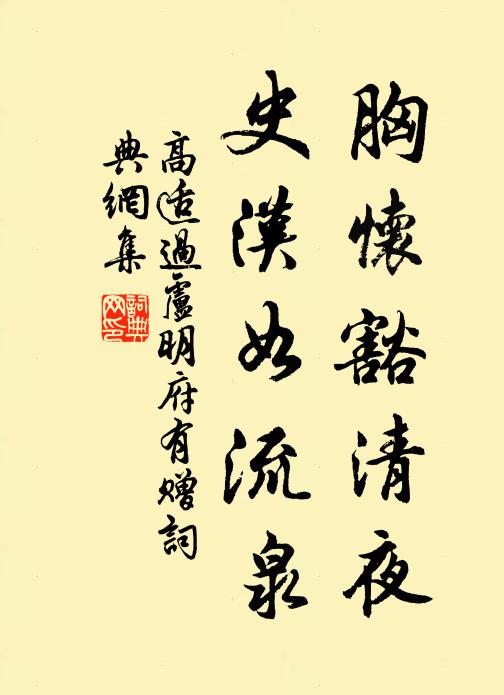 胸懷豁清夜
史漢如流泉
高适過盧明府有贈詞
典網集
詞典
网印